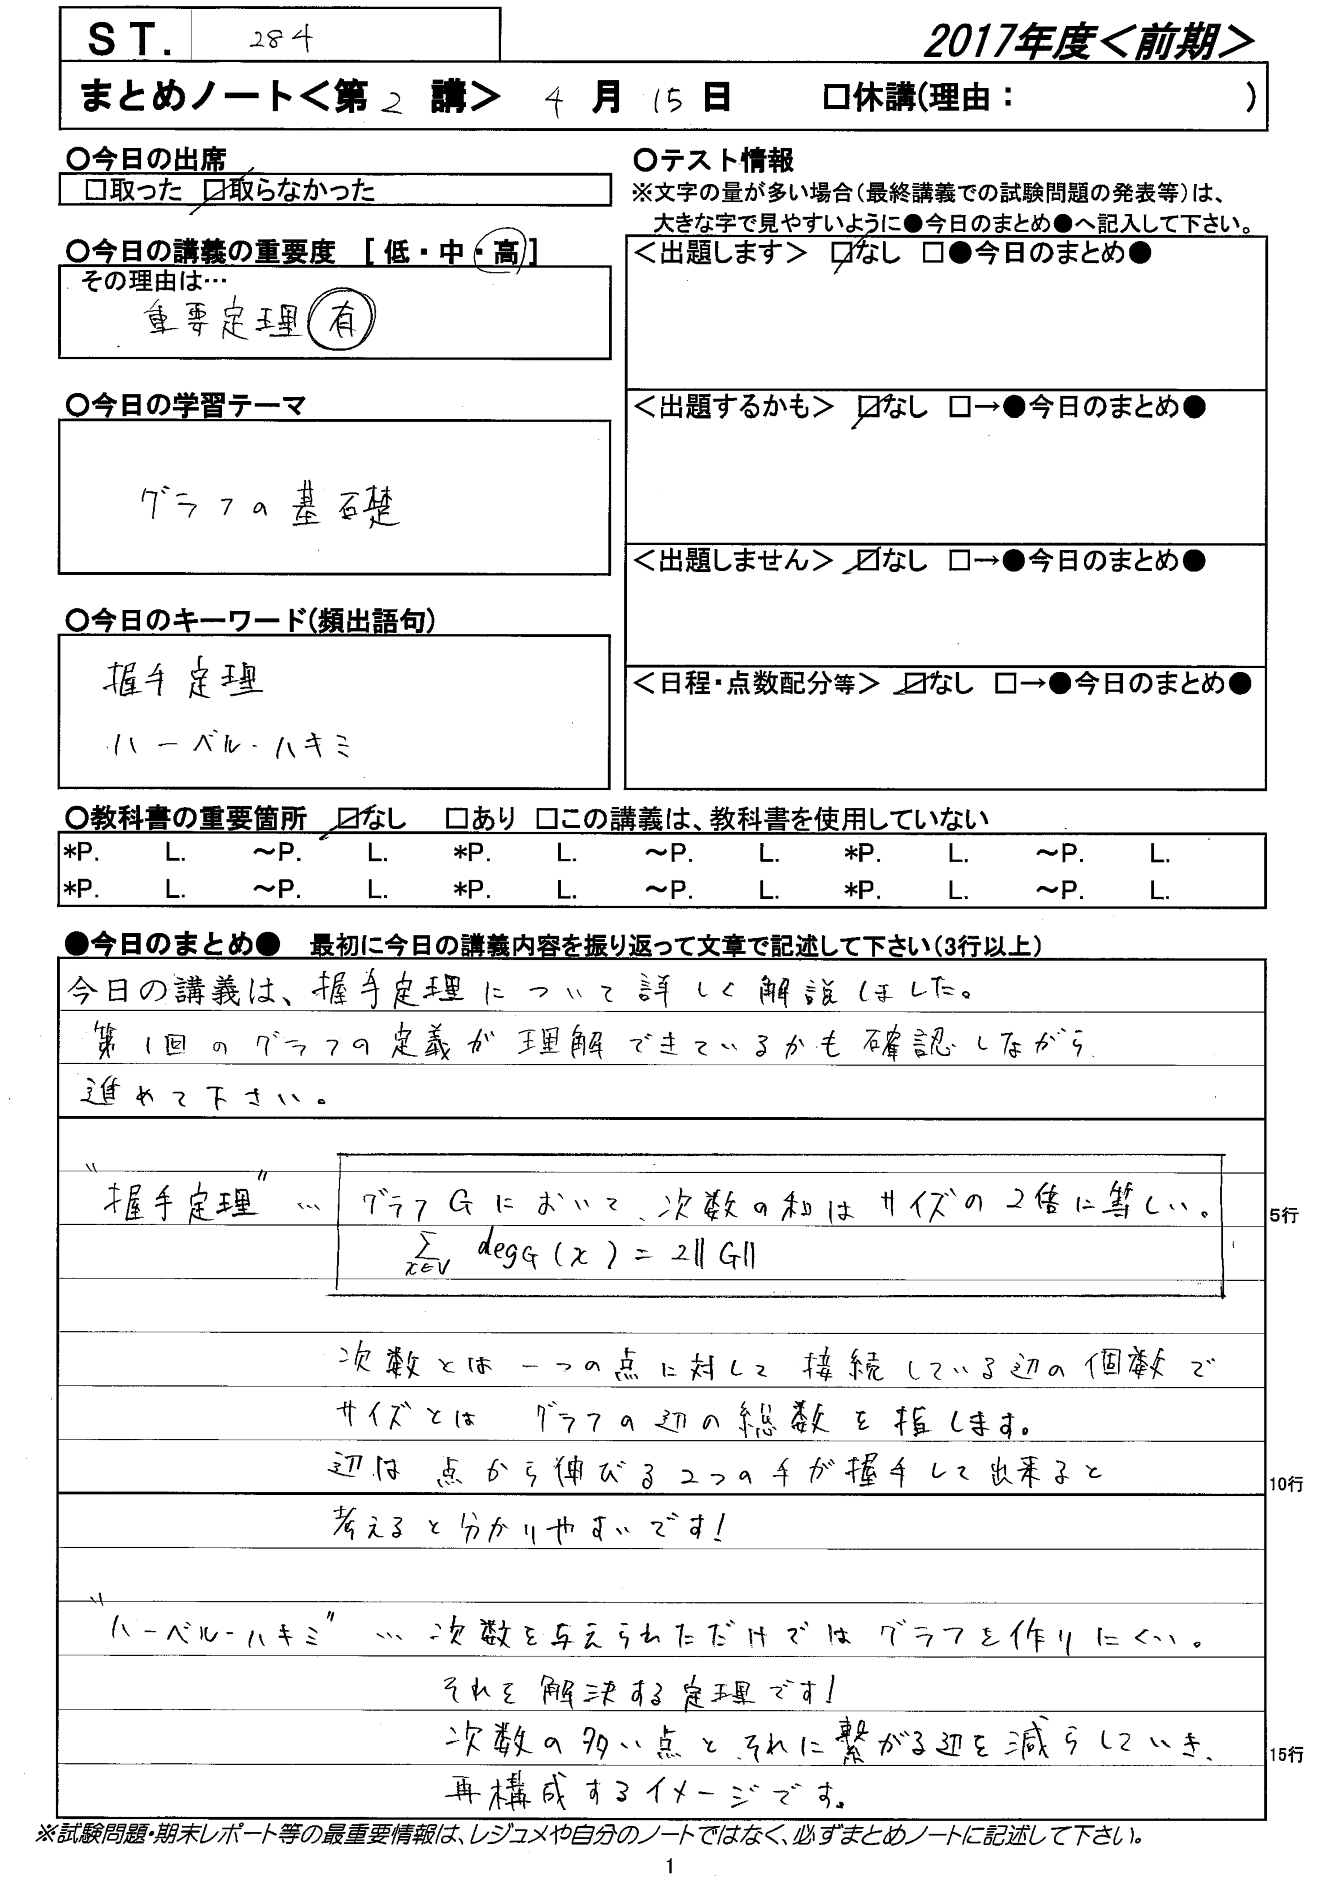 ST. 284
2017年度＜前期＞
まとめノート＜第 2 講＞ 4 月 15 日 □休講(理由： )
○今日の出席
□取った ☑取らなかった
○今日の講義の重要度 [ 低・中・高 ]
その理由は…
重要定理 有
○今日の学習テーマ
グラフの基礎
○今日のキーワード(頻出語句)
握手定理
ハーベル・ハキミ
○テスト情報
※文字の量が多い場合(最終講義での試験問題の発表等)は、
大きな字で見やすいように●今日のまとめ●へ記入して下さい。
＜出題します＞ ☑なし □●今日のまとめ●
＜出題するかも＞ ☑なし □→●今日のまとめ●
＜出題しません＞ ☑なし □→●今日のまとめ●
＜日程・点数配分等＞ ☑なし □→●今日のまとめ●
○教科書の重要箇所 ☑なし □あり □この講義は、教科書を使用していない
*P. L. ～P. L. *P. L. ～P. L. *P. L. ～P. L.
*P. L. ～P. L. *P. L. ～P. L. *P. L. ～P. L.
●今日のまとめ● 最初に今日の講義内容を振り返って文章で記述して下さい(3行以上)
今日の講義は、握手定理について詳しく解説しました。
第1回のグラフの定義が理解できているかも確認しながら
進めて下さい。
"握手定理" … グラフGにおいて、次数の和はサイズの2倍に等しい。
5行
Σ x∈V degG(x) = 2‖G‖
次数とは一つの点に対して接続している辺の個数で
サイズとは グラフの辺の総数を指します。
辺は 点から伸びる2つの手が握手して出来ると
10行
考えると分かりやすいです!
"ハーベル-ハキミ" … 次数を与えられただけではグラフを作りにくい。
それを解決する定理です!
次数の多い点とそれに繋がる辺を減らしていき、
15行
再構成するイメージです。
※試験問題・期末レポート等の最重要情報は、レジュメや自分のノートではなく、必ずまとめノートに記述して下さい。
1